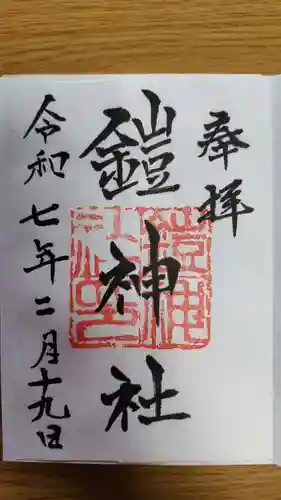 奉拝
鎧神社
令和七年二月十九日